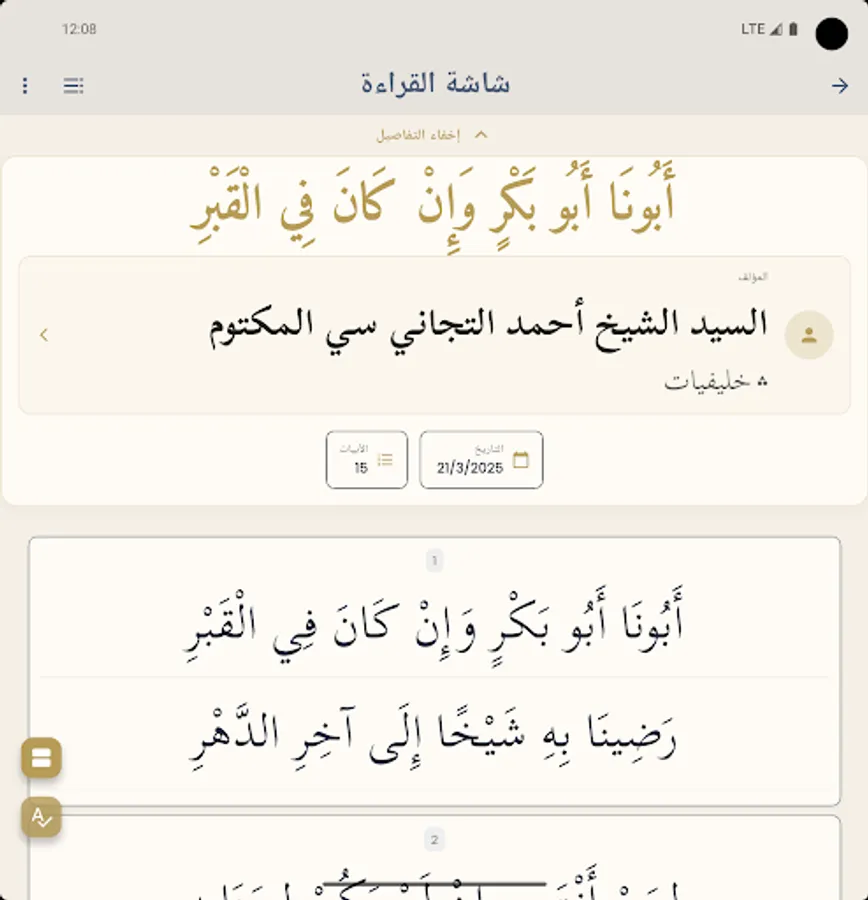 12:08
LTE
شاشة القراءة
إخفاء التفاصيل
أَبُونَا أَبُو بَكْرٍ وَإِنْ كَانَ فِي الْقَبْرِ
المؤلف
السيد الشيخ أحمد التجاني سي المكتوم
خليفيات
التاريخ
21/3/2025
الأبيات
15
1
أَبُونَا أَبُو بَكْرٍ وَإِنْ كَانَ فِي الْقَبْرِ
رَضِينَا بِهِ شَيْخًا إِلَى آخِرِ الدَّهْرِ
2